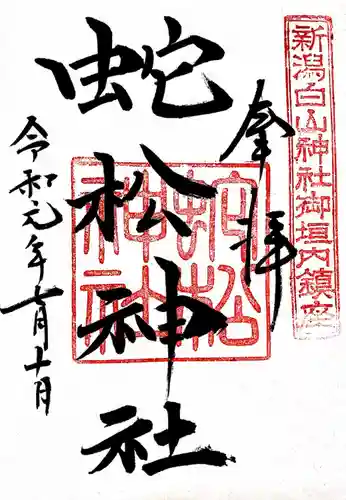 新潟白山神社御垣内鎮座
奉拝
蛇松神社
蛇松
神社
令和元年七月十日